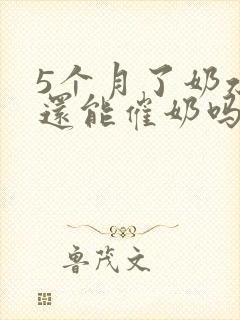 5个月了奶
還能催奶吗
鲁茂文